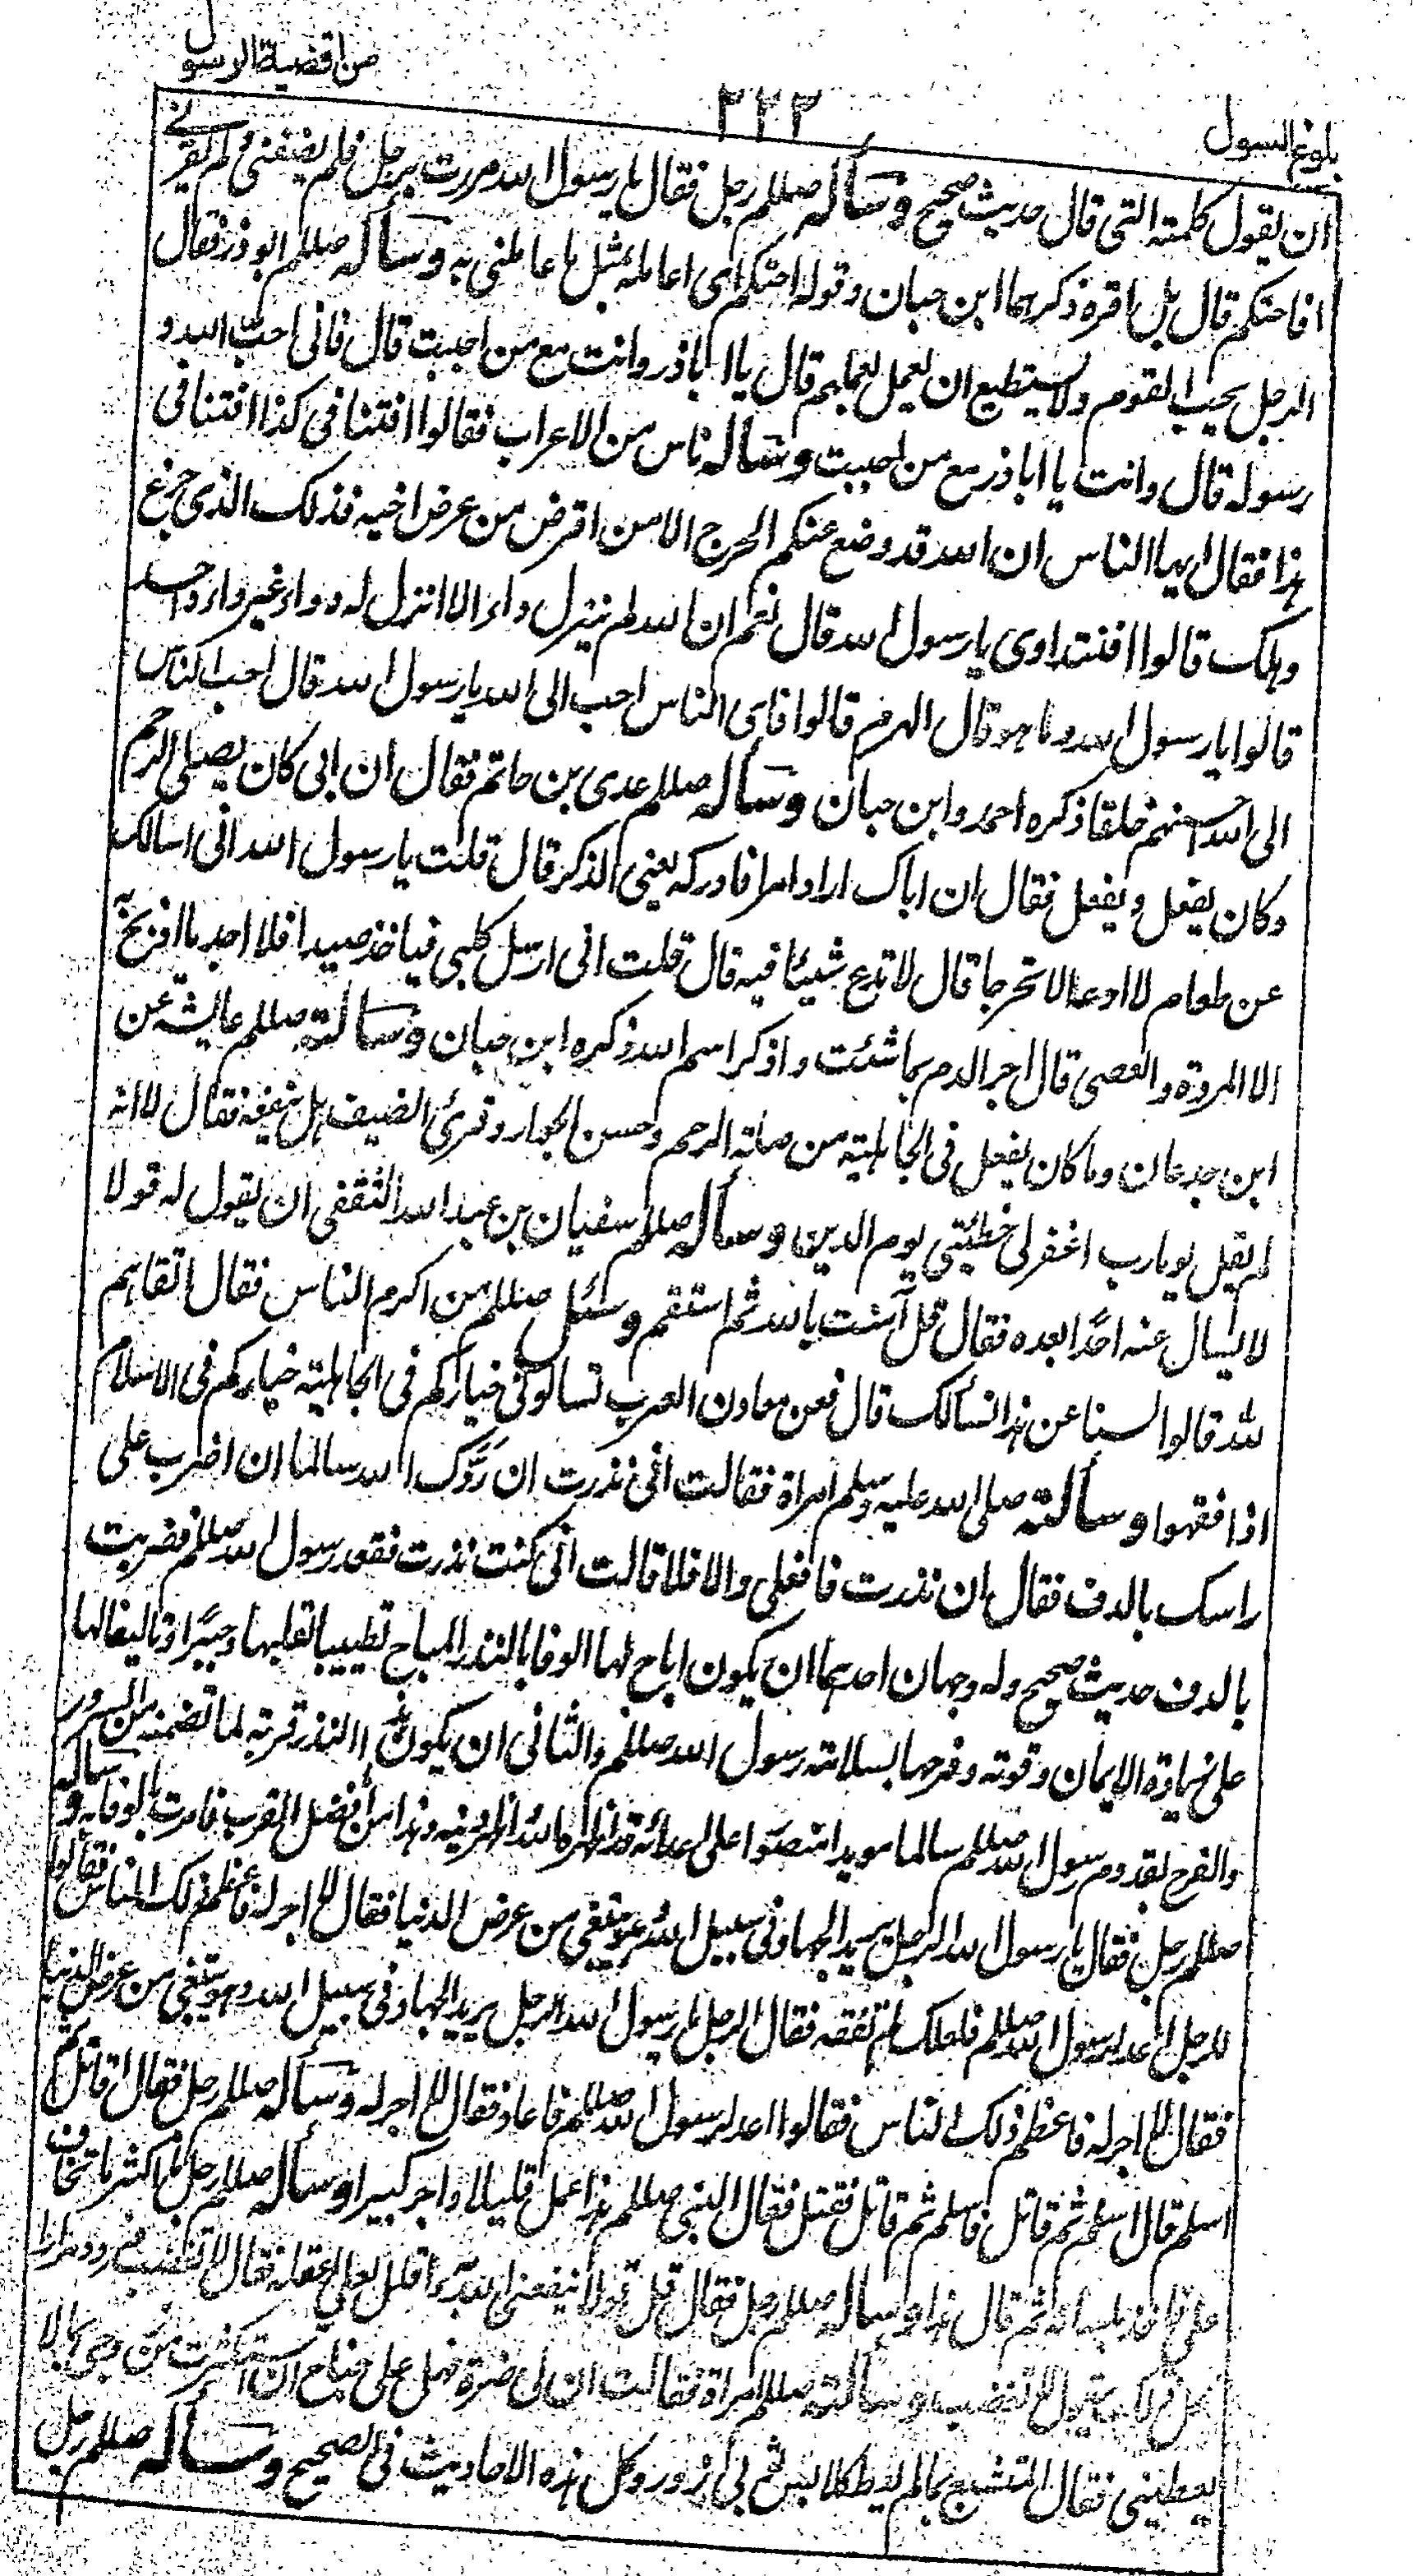 من اقضية الرسول
٢٢٢
بلوغ السول
ان يقول كلمته التى قال حديث صحيح وسأله صللم رجل فقال يا رسول الله مررت برجل فلم يضيفنى ولم يقرنى
افاحتكم قال بل اقره ذكرهما ابن حبان وقوله احتكم اى اعامله بمثل ما عاملنى به وسأله صللم ابو ذر فقال
الرجل يحب القوم ولا يستطيع ان يعمل بعملهم قال يا ابا ذر وانت مع من احببت قال فانى احب الله و
رسوله قال وانت يا ابا ذر مع من احببت وسأله ناس من الاعراب فقالوا افتنا فى كذا افتنا فى
هذا فقال ايها الناس ان الله قد وضع عنكم الحرج الا من اقرض من عرض اخيه فذلك الذى حرج
وهلك قالوا افنتداوى يا رسول الله قال نعم ان الله لم ينزل داء الا انزل له دواء غير داء واحد
قالوا يا رسول الله وما هو قال الهرم قالوا فاى الناس احب الى الله يا رسول الله قال احب الناس
الى الله احسنهم خلقا ذكره احمد وابن حبان وسأله صللم عدى بن حاتم فقال ان ابى كان يصلى الرحم
وكان يفعل ويفعل فقال ان اباك اراد امرا فادركه يعنى الذكر قال قلت يا رسول الله انى اسالك
عن طعام لا ادعه الا تحرجا قال لا تدع شيئا فيه قال قلت انى ارسل كلبى فياخذ صيدا فلا اجد ما اذبحه
الا المروة والعصى قال اجر الدم بما شئت واذكر اسم الله ذكره ابن حبان وسألته صللم عايشة عن
ابن جدعان وما كان يفعل فى الجاهلية من صلة الرحم وحسن الجوار وقرى الضيف هل ينفعه فقال لا انه
لم يقل يوما رب اغفر لى خطيئتى يوم الدين وسأله صللم سفيان بن عبد الله الثقفى ان يقول له قولا
لا يسال عنه احدا بعده فقال قل آمنت بالله ثم استقم وسئل صللم من اكرم الناس فقال اتقاهم
لله قالوا لسنا عن هذا نسألك قال فعن معادن العرب تسالونى خياركم فى الجاهلية خياركم فى الاسلام
اذا فقهوا وسألته صلى الله عليه وسلم امراة فقالت انى نذرت ان ردّك الله سالما ان اضرب على
راسك بالدف فقال ان نذرت فافعلى والا فلا قالت انى كنت نذرت فقعد رسول الله صللم فضربت
بالدف حديث صحيح وله وجهان احدهما ان يكون اباح لها الوفا بالنذر المباح تطييبا لقلبها وجبرا وتاليفا لها
على زيادة الايمان وقوته وفرحها بسلامته رسول الله صللم والثانى ان يكون هذا النذر قربة لما تضمنه من السرور
والفرح بقدوم رسول الله صللم سالما مويدا منصورا على اعدائه قد اظهره الله واظهر دينه وهذا من افضل القرب فامرت بالوفا به وسأله
صللم رجل فقال يا رسول الله الرجل يريد الجهاد فى سبيل الله وهو يبتغى من عرض الدنيا فقال لا اجر له فاعظم ذلك الناس فقالوا
للرجل اعد لرسول الله صللم فلعلك لم تفقهه فقال الرجل يا رسول الله الرجل يريد الجهاد فى سبيل الله وهو يبتغى من عرض الدنيا
فقال لا اجر له فاعظم ذلك الناس فقالوا اعد لرسول الله صللم فاعاد فقال لا اجر له وسأله صللم رجل فقال اقاتل ثم
اسلم قال اسلم ثم قاتل فاسلم ثم قاتل فقتل فقال النبى صللم هذا عمل قليلا واجر كبيرا وسأله صللم رجل ما اكثر ما تخاف
على فاخذ بلسانه ثم قال هذا وسأله صللم رجل فقال قل قولا ينفعنى الله به واقلل لعلى اعقله فقال لا تغضب فردد مرارا
كل ذلك يقول لا تغضب وسألته صللم امراة فقالت ان لى ضرة فهل على جناح ان استكثرت من زوجى بما لا
يعطينى فقال المتشبع بما لم يعط كلابس ثوبى زور وكل هذه الاحاديث فى الصحيح وسأله صللم رجل